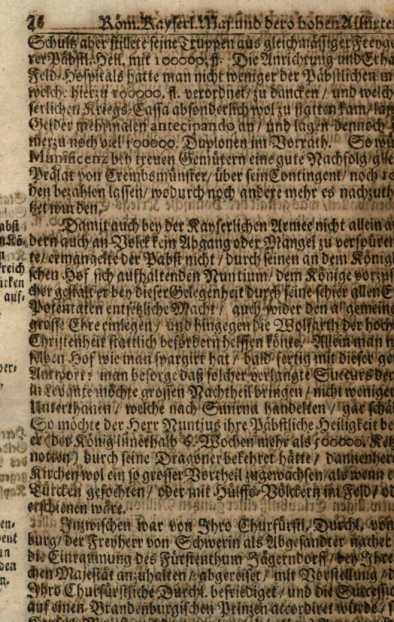 26 Röm. Kayserl. Maj. und dero hohen Alliirten
Schutz aber stillete seine Truppen aus gleichmässiger Freyge
vor Päbstl. Heil. mit 100000. fl. Die Anrichtung und Erha
Feld-Hospitals hatte man nicht weniger der Päbstlichen
welche hierzu 100000. fl. verordnet/ zu dancken / und welch
serlichen Kriegs-Cassa absonderlich wol zu statten kam/
Gelder mehrmalen antecipando an / und lagen dennoch
hierzu noch viel 100000. Duplonen im Vorrath. So wü
Munificenz bey treuen Gemütern eine gute Nachfolg/
Prälat von Crembsmünster / über sein Contingent/ noch
den bezahlen lassen/ wodurch noch andere mehr es nachzuth
tzet wurden.
Damit auch bey der Kayserlichen Armee nicht allein
dern auch an Volck kein Abgang oder Mangel zu verspüren
te/ ermangelte der Pabst nicht / durch seinen an dem Königl
schen Hof sich aufhaltenden Nuntium/ dem Könige vorzu
cher gestalt er bey dieser Gelegenheit durch seine schier allen
Potentaten entsetzliche Macht / auch wider den allgemeine
grosse Ehre einlegen / und hingegen die Wolfarth der hoch
Christenheit stattlich befördern helffen könte. Allein man
selben Hof wie man spargirt hat / bald fertig mit dieser
Antwort: man besorge daß solcher verlangte Succurs der
in Levante möchte grossen Nachtheil bringen / nicht weniger
Unterthanen / welche nach Smirna handelten / gar schä
So möchte der Herr Nuntius ihre Päbstliche Heiligkeit be
er (der König) innerhalb 8. Wochen mehr als 100000.
notten) durch seine Dragoner bekehret hätte / dannenher
Kirchen wol ein so grosser Vortheil zugewachsen/ als wenn
Türcken gefochten / oder mit Hülffs-Völckern im Feld /
erschienen wäre.
Inzwischen war von Ihro Churfürstl. Durchl. von
burg/ der Freyherr von Schwerin als Abgesandter nacher
die Einraumung des Fürstenthum Jägerndorff / bey Ihre
chen Majestät anzuhalten / abgereiset / mit Vorstellung /
Ihro Churfürstliche Durchl. befriediget / und die Succession
auf einen Brandenburgischen Prinzen accordiret würde /